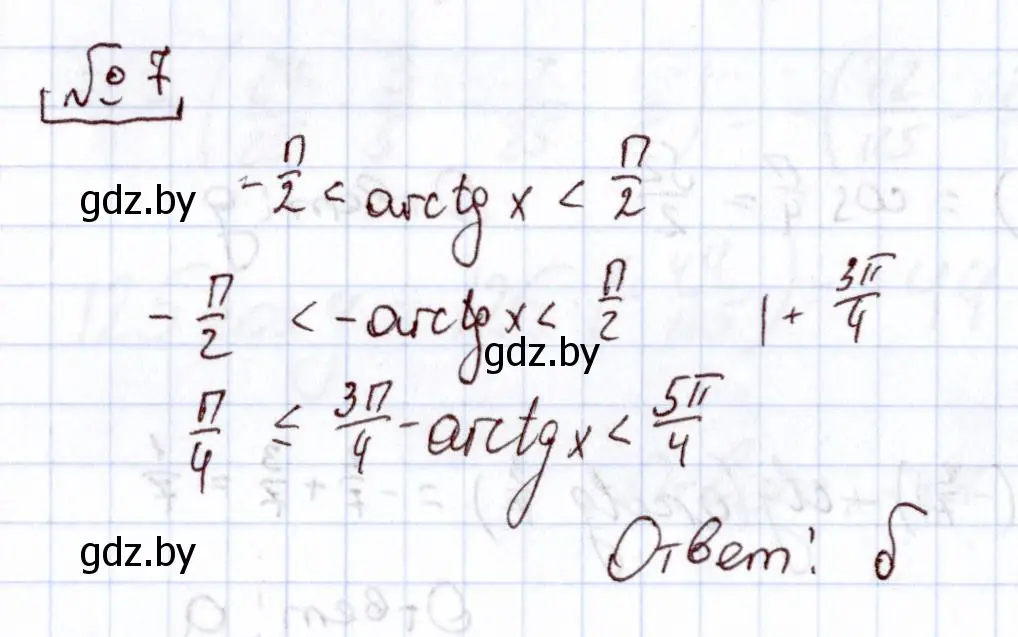 № 7
gdz.by
-π/2 < arctg x < π/2
-π/2 < -arctg x < π/2 | + 3π/4
gdz.by
π/4 ≤ 3π/4 - arctg x < 5π/4
gdz.by
Ответ: б